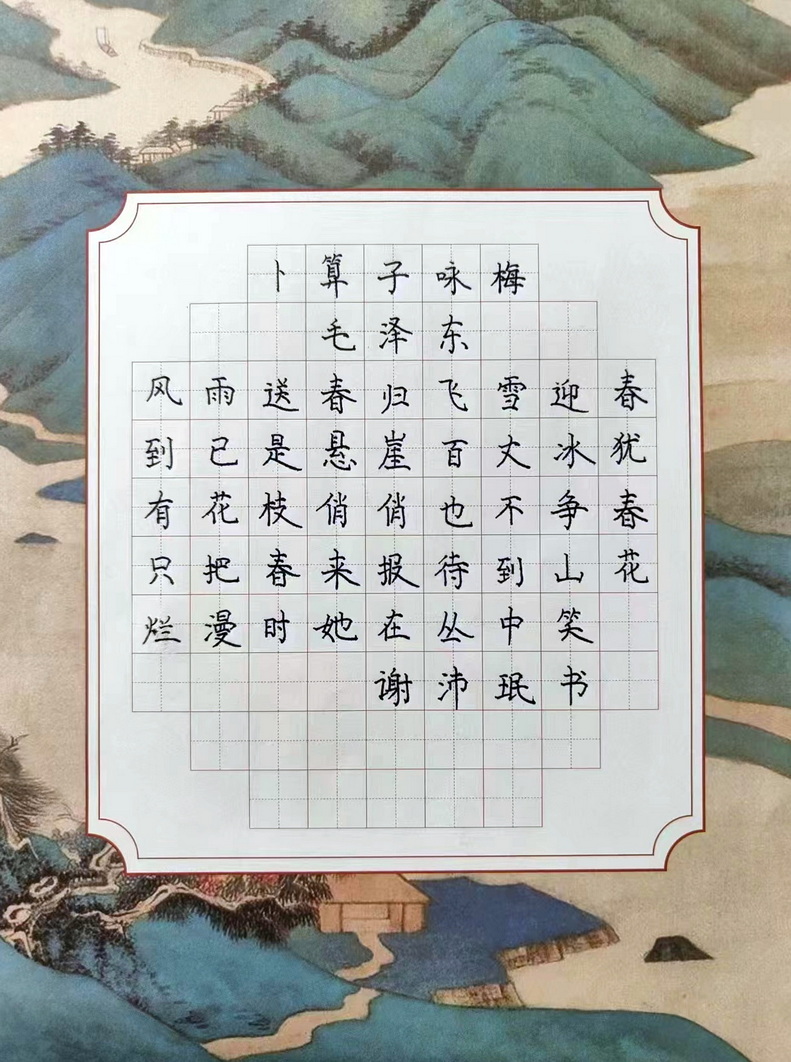 卜算子咏梅
毛泽东
风雨送春归飞雪迎春
到已是悬崖百丈冰犹
有花枝俏俏也不争春
只把春来报待到山花
烂漫时她在丛中笑
谢沛珉书